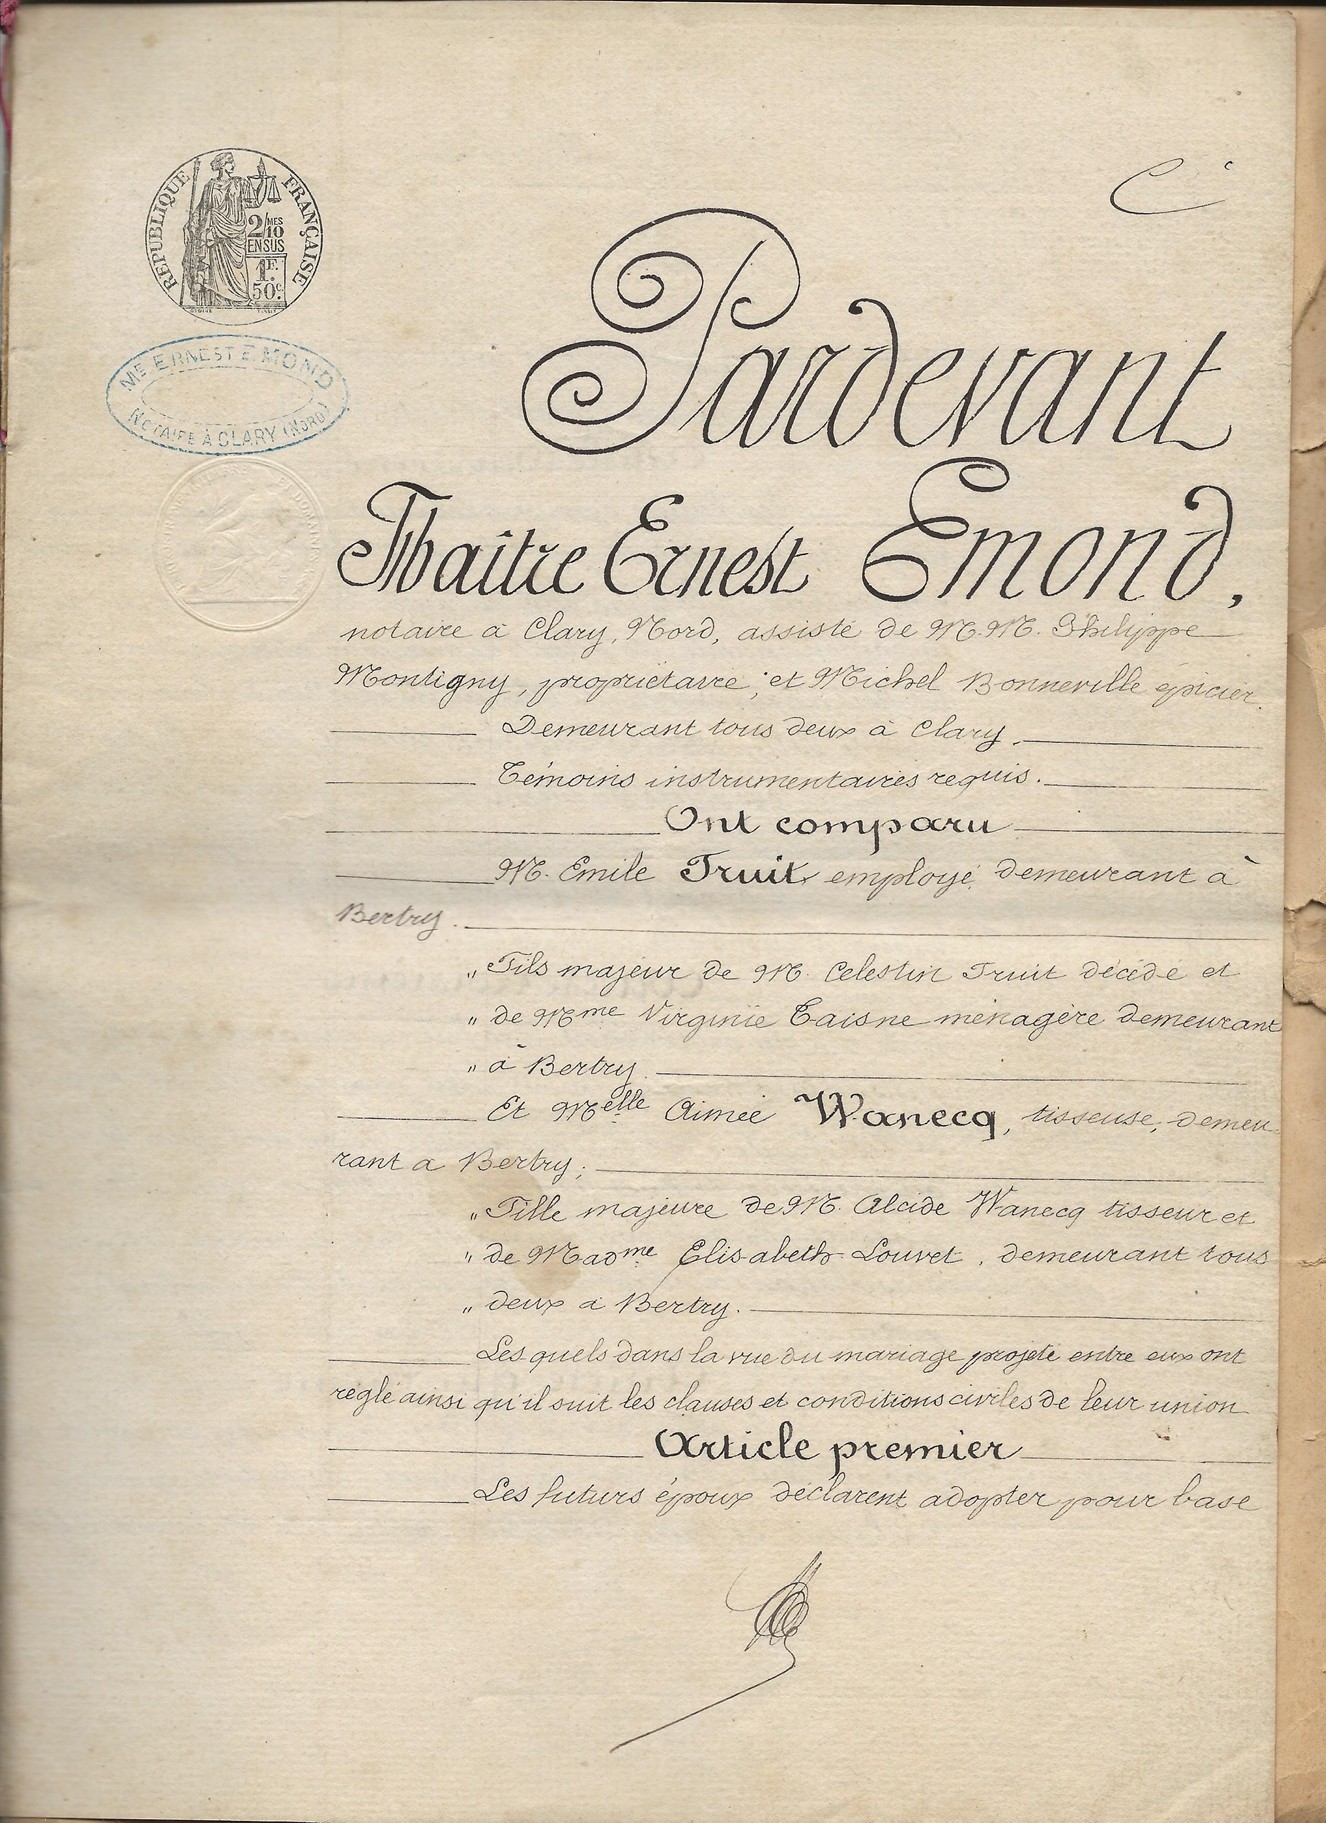 RÉPUBLIQUE FRANÇAISE
2/10MES
EN SUS
1F.
50c.
Me ERNEST EMOND
NOTAIRE À CLARY (NORD)
Pardevant
Maître Ernest Emond,
notaire à Clary, Nord, assisté de M.M. Philippe
Montigny, propriétaire, et Michel Bonneville épicier.
Demeurant tous deux à Clary.
Témoins instrumentaires requis.
Ont comparu
M. Emile Fruit, employé, demeurant à
Bertry.
„ Fils majeur de M. Celestin Fruit décédé et
„ de Mme Virginie Taisne ménagère demeurant
„ à Bertry.
Et Melle Aimée Wanecq, tisseuse, demeu
rant à Bertry;
„ Fille majeure de M. Alcide Wanecq tisseur et
„ de Madme Elisabeth Louvet, demeurant tous
„ deux à Bertry.
Les quels dans la vue du mariage projeté entre eux ont
réglé ainsi qu'il suit les clauses et conditions civiles de leur union
Article premier
Les futurs époux déclarent adopter pour base